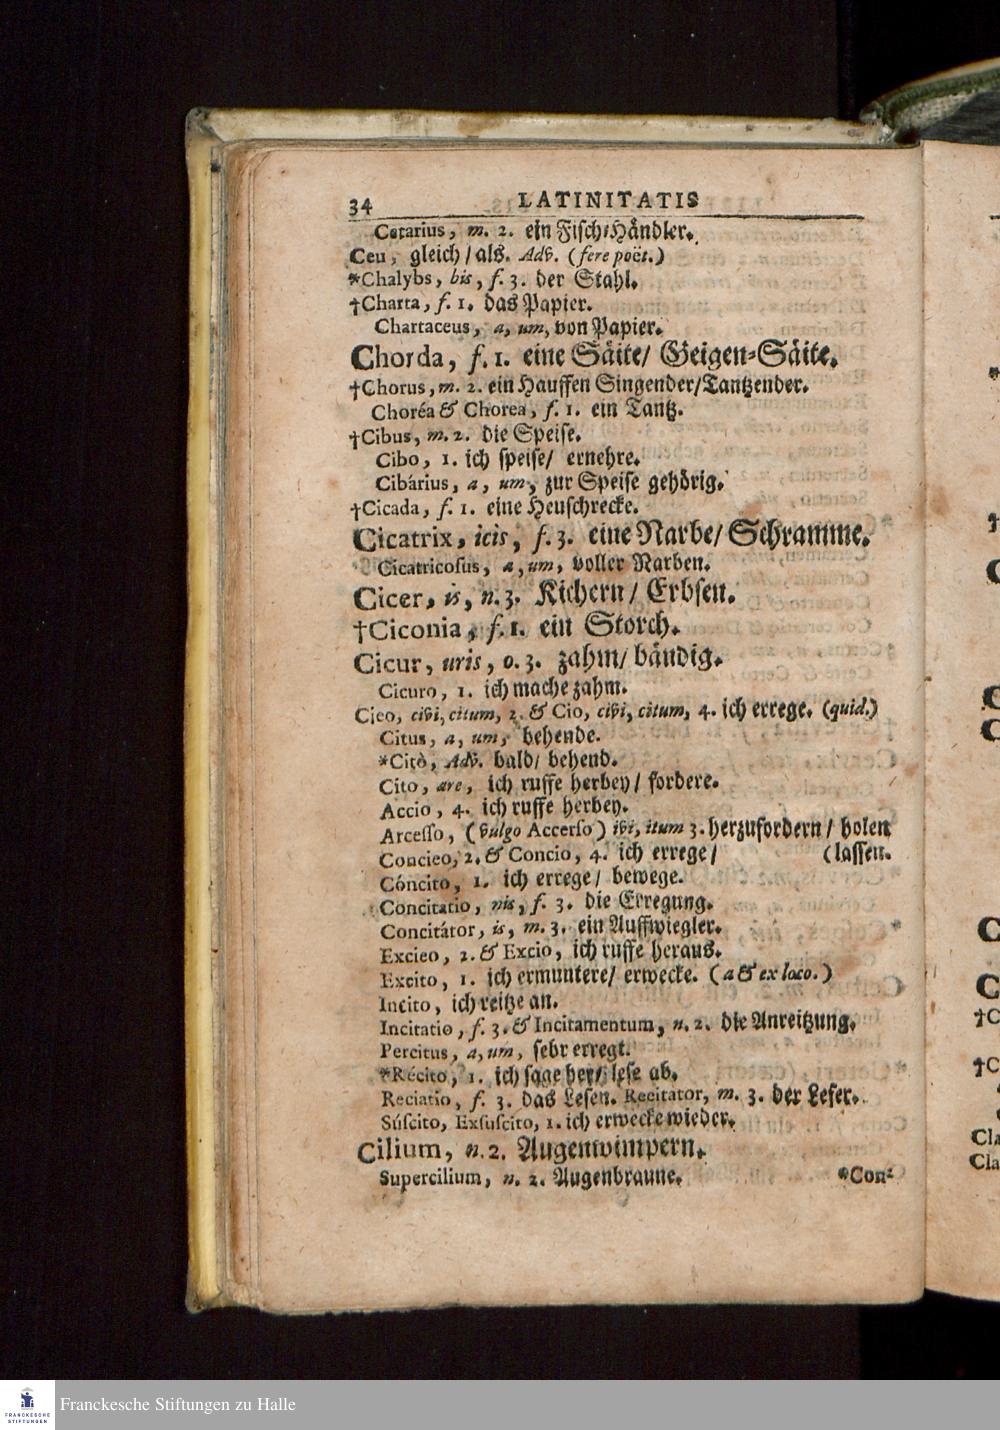 34 LATINITATIS
Cetarius, m. 2. ein Fisch-Händler.
Ceu, gleich / als. Adv. (fere poët.)
*Chalybs, bis, f. 3. der Stahl.
†Charta, f. 1. das Papier.
Chartaceus, a, um, von Papier.
Chorda, f. 1. eine Säite / Geigen-Säite.
†Chorus, m. 2. ein Hauffen Singender / Tantzender.
Choréa & Chorea, f. 1. ein Tantz.
†Cibus, m. 2. die Speise.
Cibo, 1. ich speise / ernehre.
Cibárius, a, um, zur Speise gehörig.
†Cicada, f. 1. eine Heuschrecke.
Cicatrix, icis, f. 3. eine Narbe / Schramme.
Cicatricosus, a, um, voller Narben.
Cicer, is, n. 3. Kichern / Erbsen.
†Ciconia, f. 1. ein Storch.
Cicur, uris, o. 3. zahm / bändig.
Cicuro, 1. ich mache zahm.
Cieo, civi, citum, 2. & Cio, civi, citum, 4. ich errege. (quid.)
Citus, a, um, behende.
*Citò, Adv. bald / behend.
Cito, are, ich ruffe herbey / fordere.
Accio, 4. ich ruffe herbey.
Arcesso, (vulgo Accerso) ivi, itum 3. herzufordern / holen
Concieo, 2. & Concio, 4. ich errege / (lassen.
Cóncito, 1. ich errege / bewege.
Concitatio, nis, f. 3. die Erregung.
Concitátor, is, m. 3. ein Auffwiegler.
Excieo, 2. & Excio, ich ruffe heraus.
Excito, 1. ich ermuntere / erwecke. (a & ex loco.)
Incito, ich reitze an.
Incitatio, f. 3. & Incitamentum, n. 2. die Anreitzung.
Percitus, a, um, sehr erregt.
*Récito, 1. ich sage her / lese ab.
Reciatio, f. 3. das Lesen. Recitator, m. 3. der Leser.
Súscito, Exsuscito, 1. ich erwecke wieder.
Cilium, n. 2. Augenwimpern.
Supercilium, n. 2. Augenbraune. *Con-
*
†
C
C
C
C
C
†C
†C
Cla
Cla
FRANCKESCHE STIFTUNGEN
Franckesche Stiftungen zu Halle